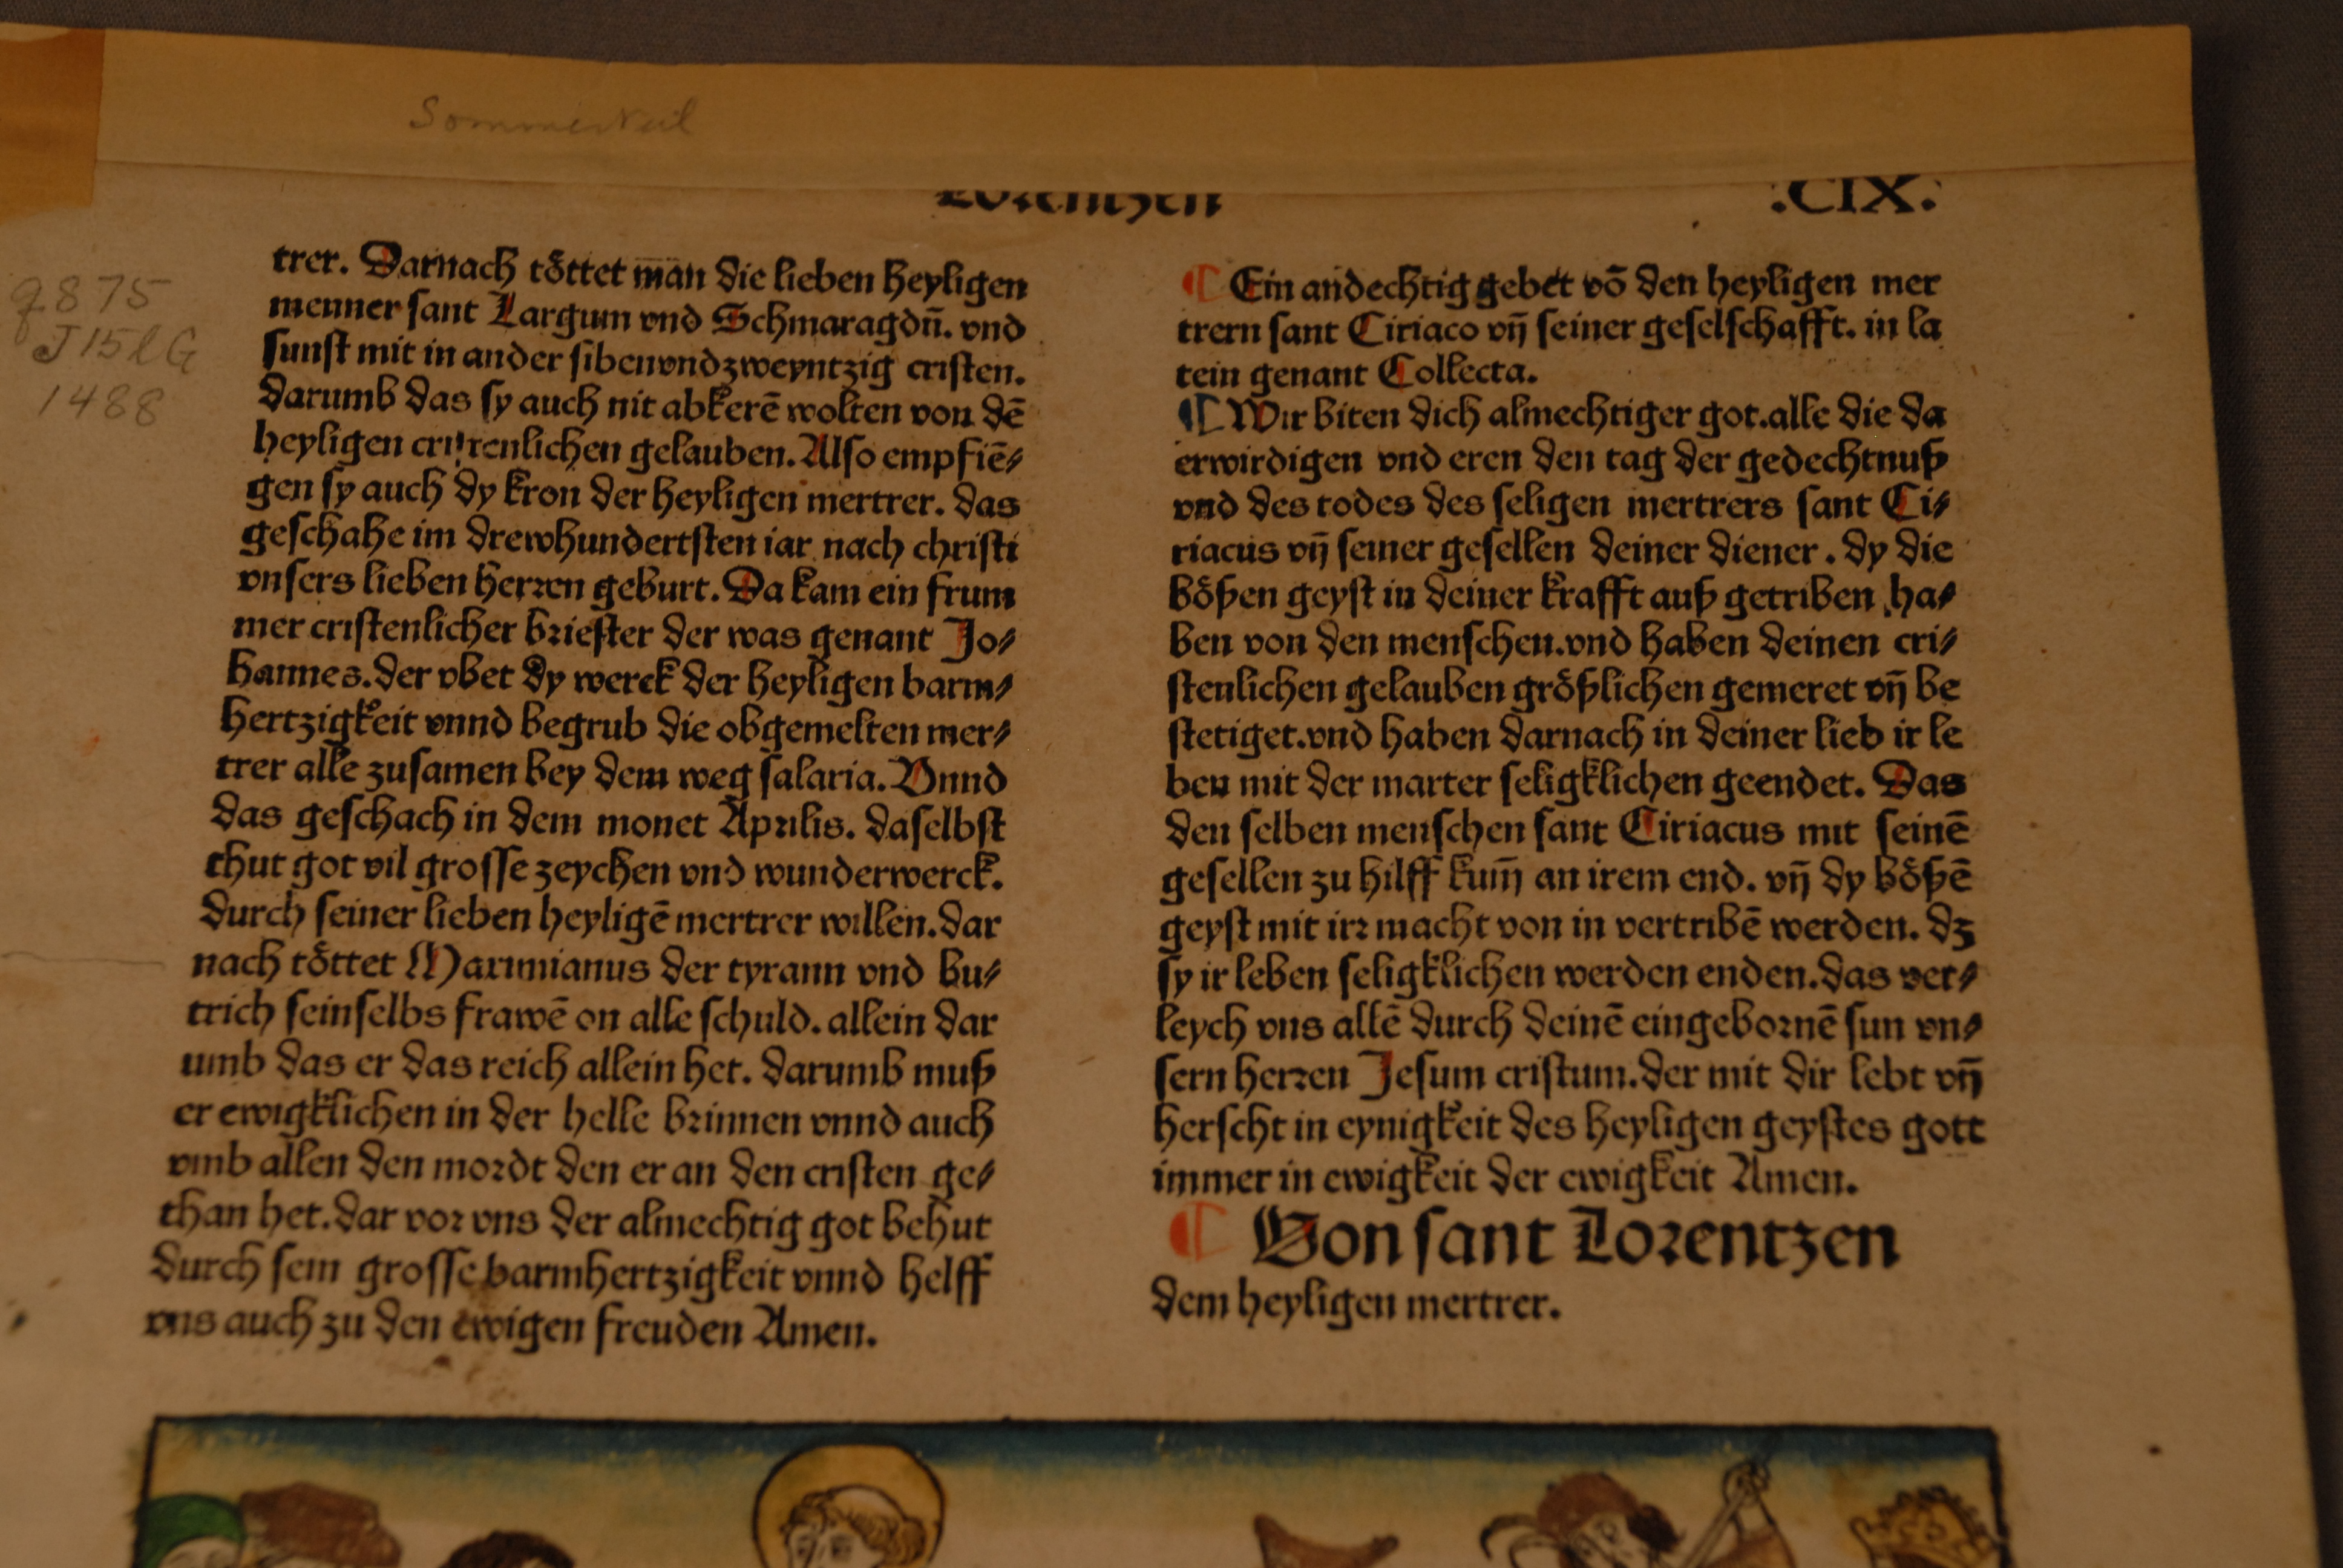 Sommerteil
Lorentzen
.CIX.
q875
J15lG
1488
trer. Darnach töttet man die lieben heyligen
menner sant Largum vnd Schmaragdū. vnd
sunst mit in ander sibenvndzweyntzig cristen.
darumb das sy auch nit abkerē wolten von dē
heyligen cristenlichen gelauben. Also empfiē⸗
gen sy auch dy kron der heyligen mertrer. das
geschahe im drewhundertsten iar nach christi
vnsers lieben herren geburt. Da kam ein frum
mer cristenlicher briester der was genant Jo⸗
hannes. der vbet dy werck der heyligen barm⸗
hertzigkeit vnnd begrub die obgemelten mer⸗
trer alle zusamen bey dem weg salaria. Vnnd
das geschach in dem monet Aprilis. daselbst
thut got vil grosse zeychen vnd wunderwerck.
durch seiner lieben heyligē mertrer willen. dar
nach töttet Maximianus der tyrann vnd bu⸗
trich seinselbs frawē on alle schuld. allein dar
umb das er das reich allein het. darumb muß
er ewigklichen in der helle brinnen vnnd auch
vmb allen den mordt den er an den cristen ge⸗
than het. dar vor vns der almechtig got behut
durch sein grosse barmhertzigkeit vnnd helff
vns auch zu den ewigen freuden Amen.
¶ Ein andechtig gebet vō den heyligen mer
trern sant Ciriaco vñ seiner geselschafft. in la
tein genant Collecta.
¶ Wir biten dich almechtiger got. alle die da
erwirdigen vnd eren den tag der gedechtnuß
vnd des todes des seligen mertrers sant Ci⸗
riacus vñ seiner gesellen deiner diener. dy die
bößen geyst in deiner krafft auß getriben ha⸗
ben von den menschen. vnd haben deinen cri⸗
stenlichen gelauben größlichen gemeret vñ be
stetiget. vnd haben darnach in deiner lieb ir le
ben mit der marter seligklichen geendet. Das
den selben menschen sant Ciriacus mit seinē
gesellen zu hilff kum̄ an irem end. vñ dy bößē
geyst mit irr macht von in vertribē werden. dz
sy ir leben seligklichen werden enden. das ver⸗
leych vns allē durch deinē eingebornē sun vn⸗
sern herren Jesum cristum. der mit dir lebt vñ
herscht in eynigkeit des heyligen geystes gott
immer in ewigkeit der ewigkeit Amen.
¶ Von sant Lorentzen
dem heyligen mertrer.